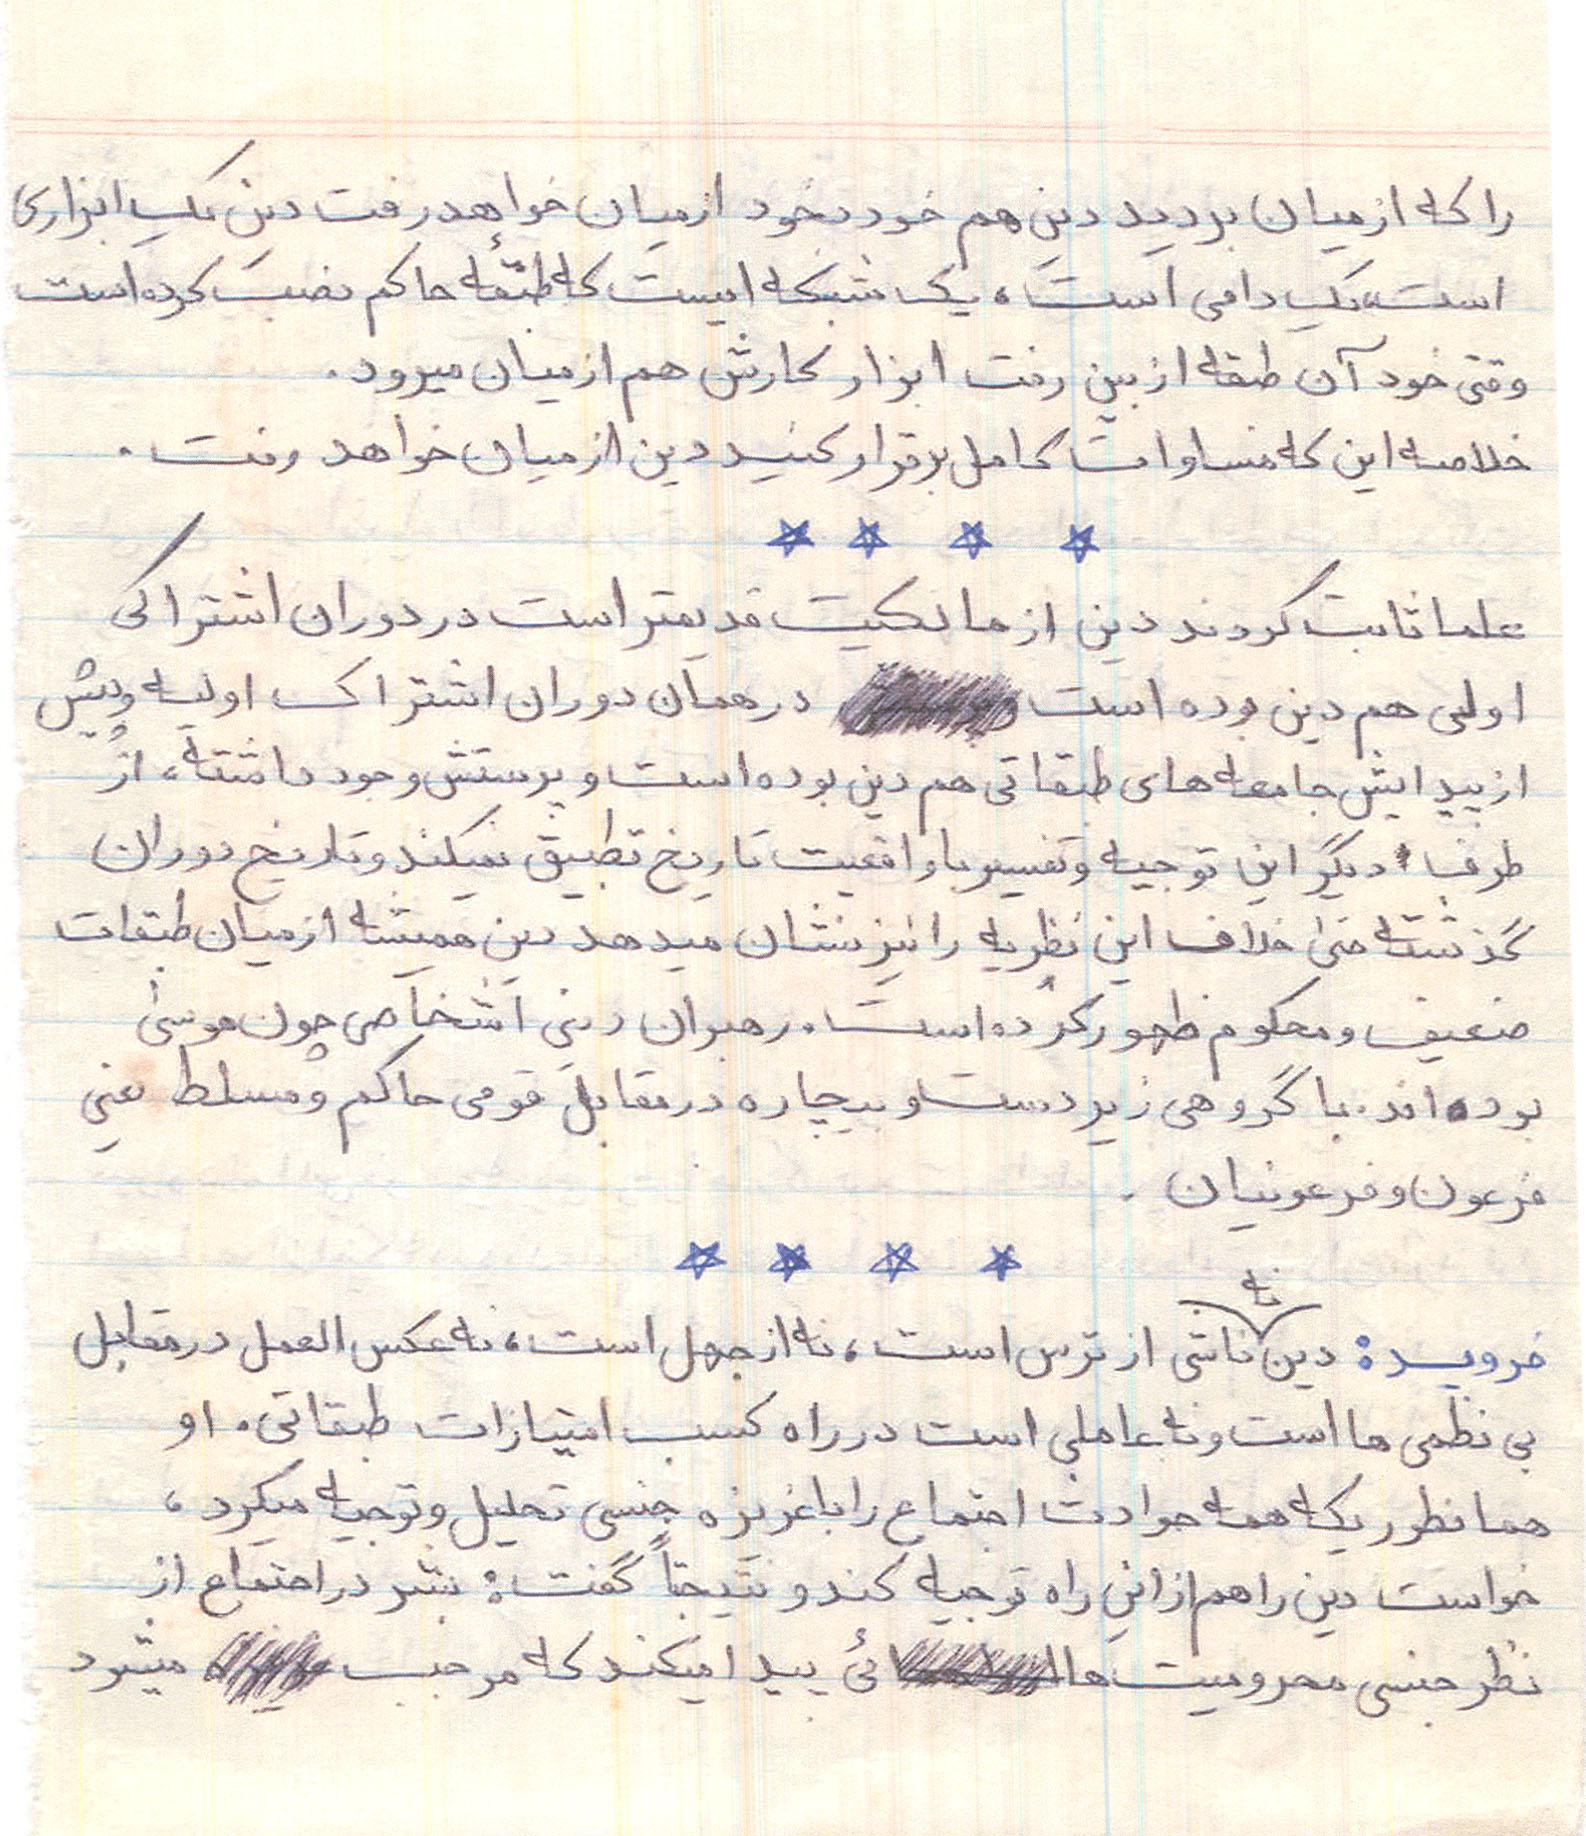 را که از میان بردید دین هم خود بخود از میان خواهد رفت دین یک ابزاری
است، یک دامی است، یک شبکه ایست که طبقه حاکم نصب کرده است
وقتی خود آن طبقه از بین رفت ابزار کارش هم از میان میرود.
خلاصه این که مساوات کامل برقرار کنید دین از میان خواهد رفت.
علما ثابت کردند دین از مالکیت قدیمتر است در دوران اشتراکی
اولی هم دین بوده است در همان دوران اشتراک اولیه و پیش
از پیدایش جامعه های طبقاتی هم دین بوده است و پرستش وجود داشته، از
طرف دیگر این توجیه و تفسیر با واقعیت تاریخ تطبیق نمیکند و تاریخ دوران
گذشته حتی خلاف این نظریه را نیز نشان میدهد دین همیشه از میان طبقات
ضعیف و محکوم ظهور کرده است. رهبران دینی اشخاصی چون موسی
بوده اند. با گروهی زیر دست و بیچاره در مقابل قومی حاکم و مسلط یعنی
فرعون و فرعونیان.
فروید: دین نه ناشی از ترس است، نه از جهل است، نه عکس العمل در مقابل
بی نظمی ها است و نه عاملی است در راه کسب امتیازات طبقاتی. او
همانطوریکه همه حوادث اجتماع را با غریزه جنسی تحلیل و توجیه میکرد،
خواست دین را هم از این راه توجیه کند و نتیجتاً گفت: بشر در اجتماع از
نظر جنسی محرومیت ها ئی پیدا میکند که موجب میشود